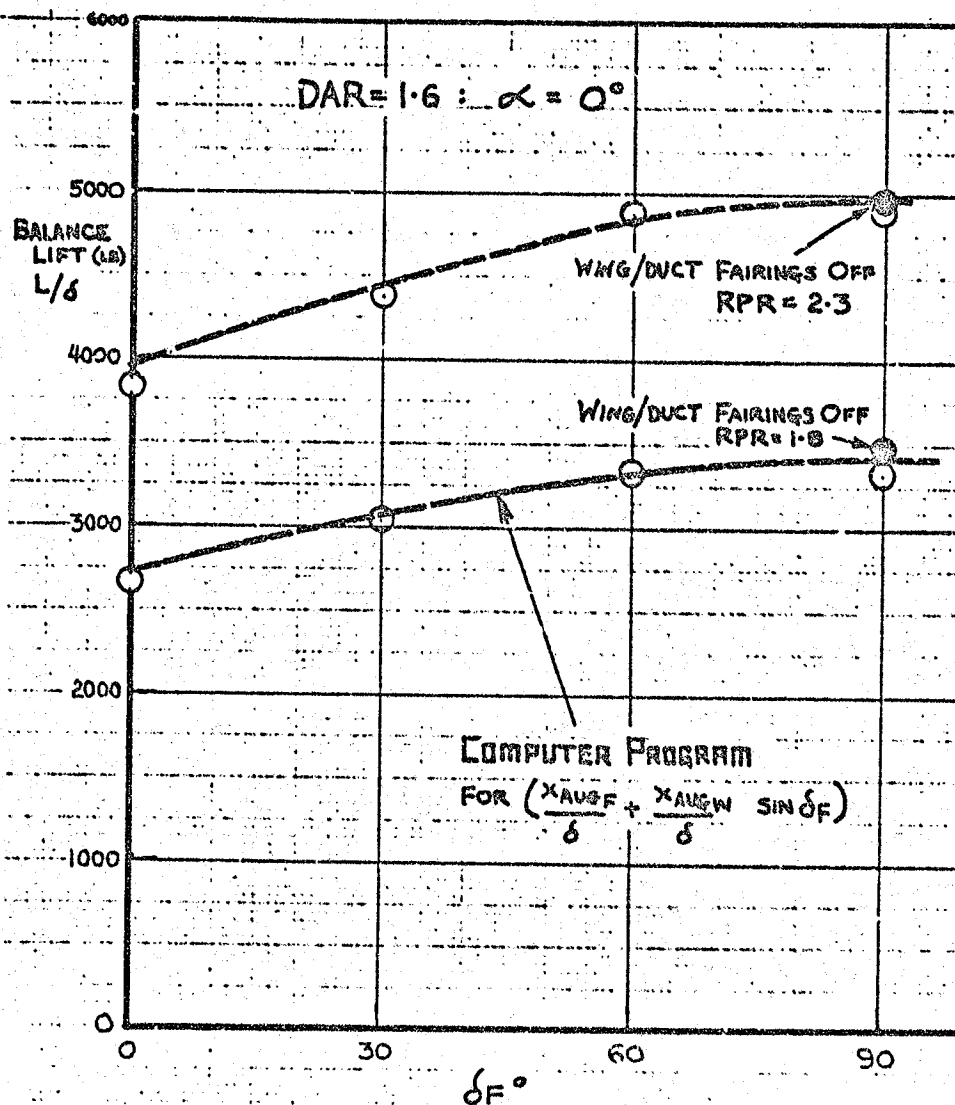 6000
DAR = 1.6 : α = 0°
5000
BALANCE
LIFT (LB)
L/δ
WING/DUCT FAIRINGS OFF
RPR = 2.3
4000
WING/DUCT FAIRINGS OFF
RPR = 1.8
3000
2000
COMPUTER PROGRAM
FOR (XAUGF/δ + XAUGW/δ SIN δF)
1000
0
0 30 60 90
δF°